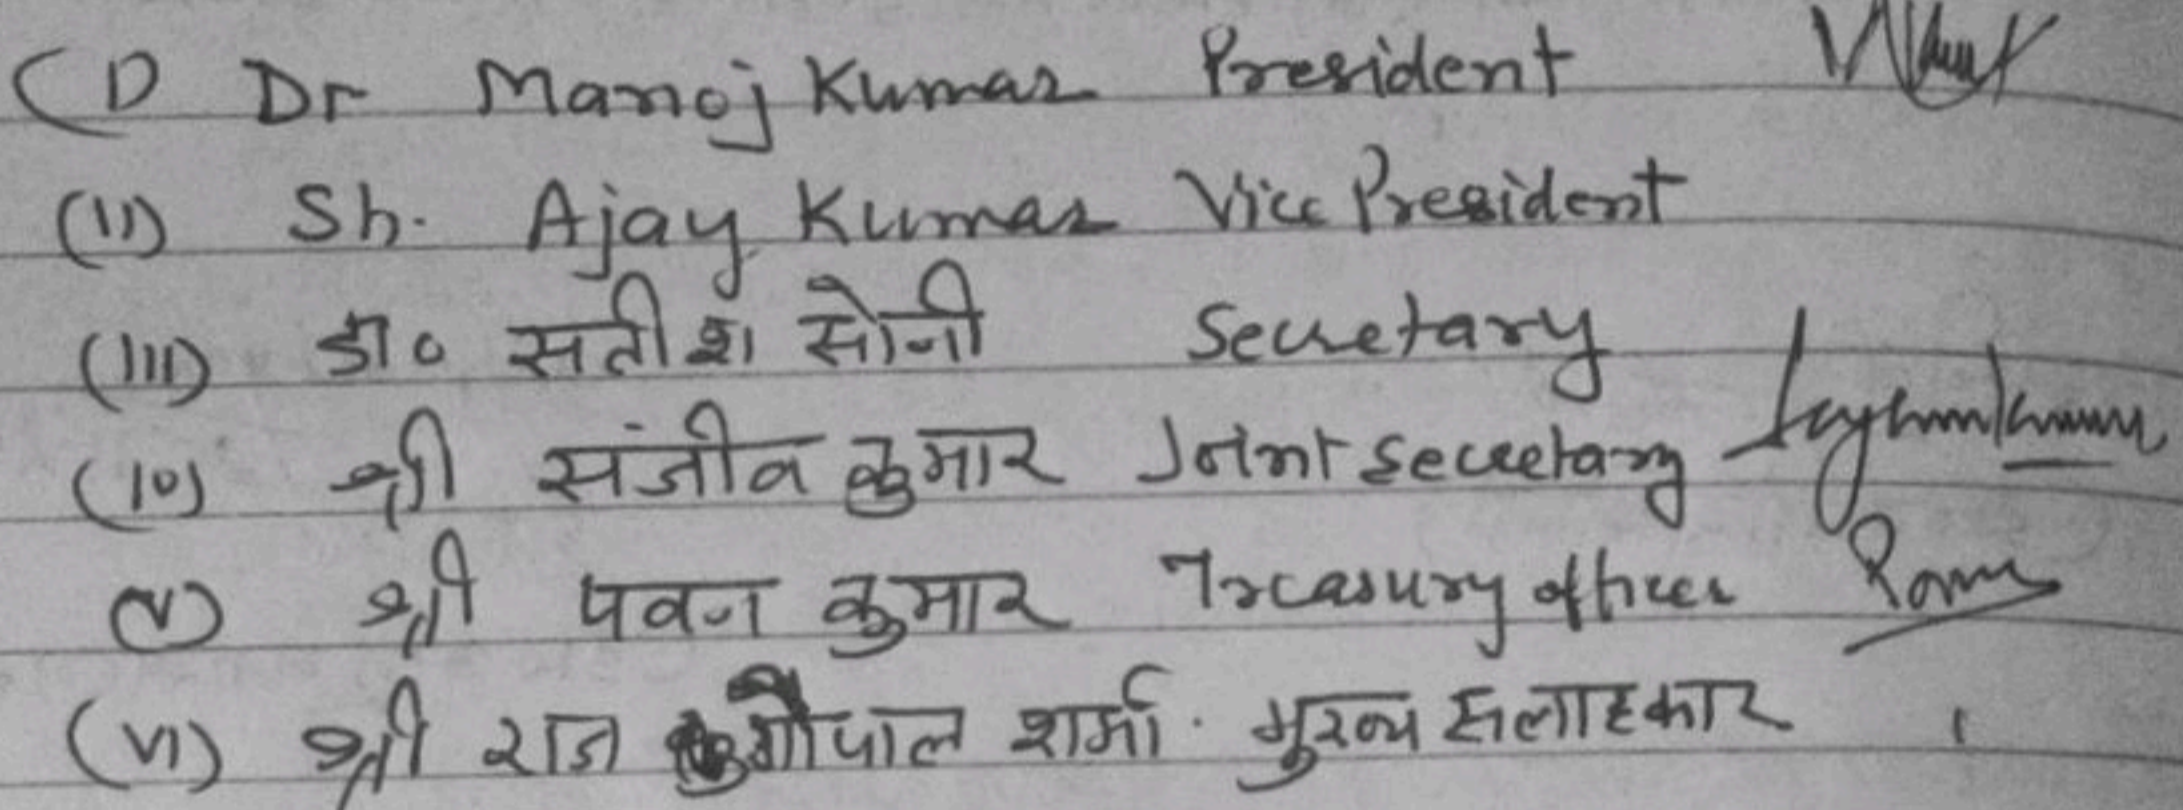 (I) Dr Manoj Kumar President
(II) Sh. Ajay Kumar Vice President
(III) डा० सतीश सोनी Secretary
(IV) श्री संजीव कुमार Joint Secretary
(V) श्री पवन कुमार Treasury officer
(VI) श्री राज गोपाल शर्मा. मुख्य सलाहकार